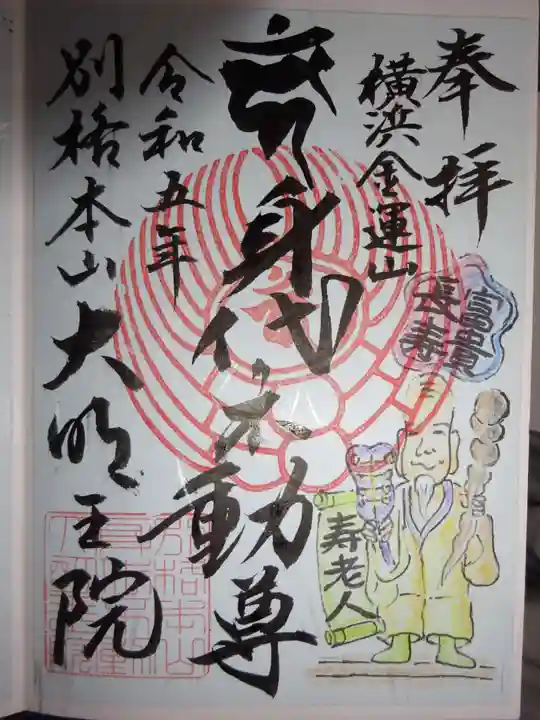 奉拝
横浜金運山
身代り不動尊
令和五年
別格本山大明王院
富貴
長寿
寿老人